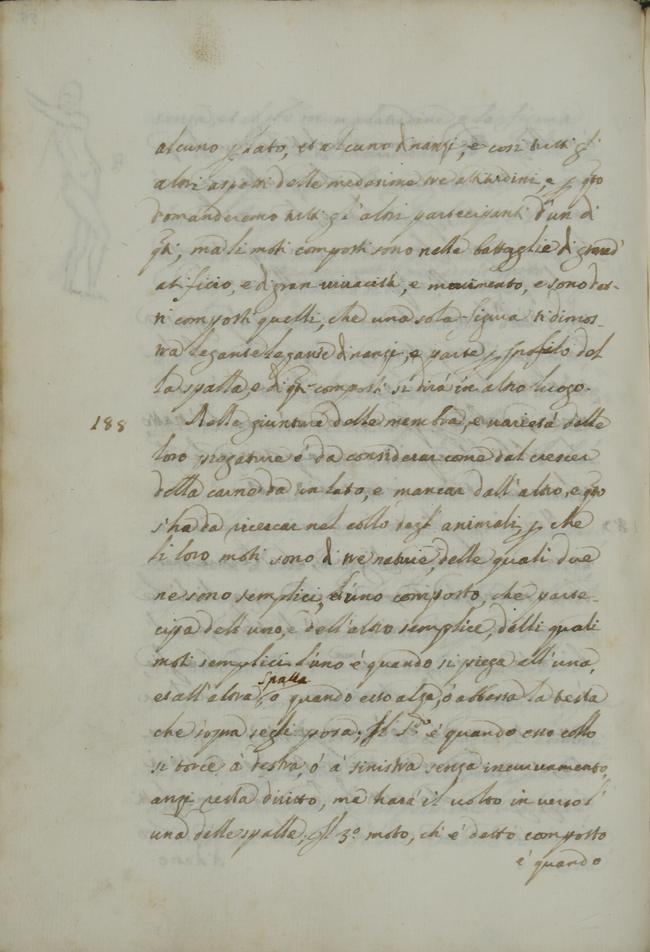 alcuno p lato, et alcuno dinanzi, e così tutti gl'
altri aspetti delle medesime tre attitudini, e p q̃to
domanderemo tutti gl'altri partecipanti d'un di
q̃ti, ma li moti composti sono nelle battaglie di grand'
artificio, e di gran vivacità, e movimento, e sono det-
ti composti quelli, che una sola figura ti dimos-
tra le gambe dinanzi, e parte p profilo del
la spalla, e di q̃ti composti si dirà in altro luogo.
188 Nelle giunture delle membra, e varietà delle
loro piegature è da considerar come dal crescer
della carne da un lato, e mancar dall'altro, e q̃to
s'ha da ricercar nel collo degl'animali, p che
li loro moti sono di tre nature, delle quali due
ne sono semplici, et uno composto, che parte-
cipa dell'uno, e dell'altro semplice, delli quali
moti semplici l'uno è quando si piega all'una,
et all'altra spalla, o quando esso alza, ò abbassa la testa
che sopra segli posa; Il 2.º è quando esso collo
si torce à destra, ò à sinistra senza incurvamento,
anzi resta diritto, ma harà il volto in verso l'
una delle spalle. Il 3.º moto, ch'è detto composto
è quando